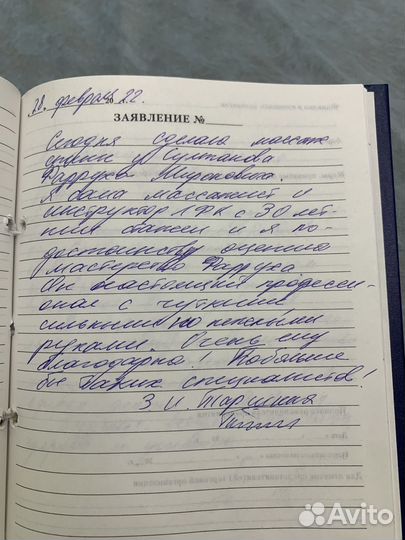 28. февраля 2022.
ЗАЯВЛЕНИЕ №
Сегодня сделала массаж
спины у Султанова
Фарруха Мироновича.
Я сама массажист и
инструктор ЛФК с 30 лет-
ним стажем и я по
достоинству оценила
мастерство Фарруха
Он настоящий професси-
онал с чуткими
сильными но нежными
руками. Очень ему
благодарна! Побольше
бы таких специалистов!
З И.
Avito